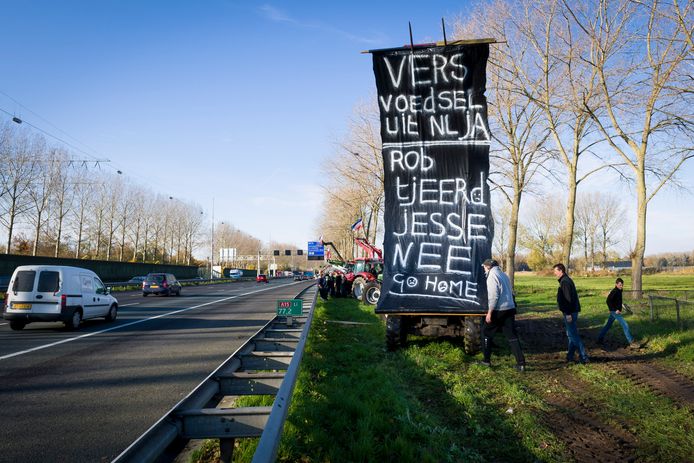 VERS
VOEDSEL
UIE NL JA
ROB
tJEERd
JESSE
NEE
GO HOME
A15 Li
77,2